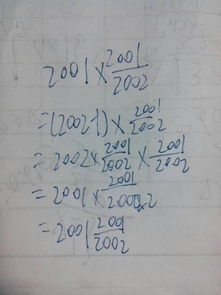 2001×2001/2002
=(2002-1)×2001/2002
=2002×2001/2002×2001/2002
=2001×2001/2002
=2001 2001/2002